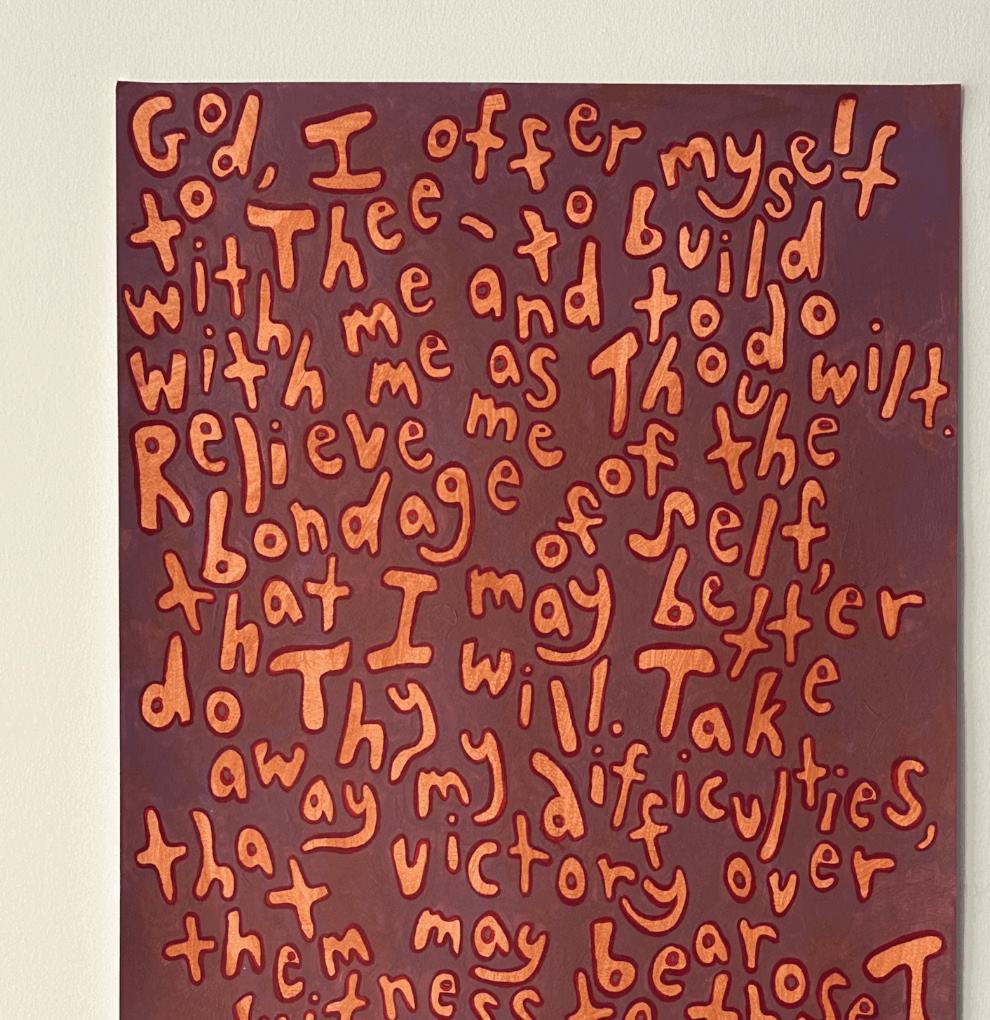 God, I offer myself
to Thee - to build
with me and to do
with me as Thou wilt.
Relieve me of the
bondage of self,
that I may better
do Thy will. Take
away my difficulties,
that victory over
them may bear
witness to those T